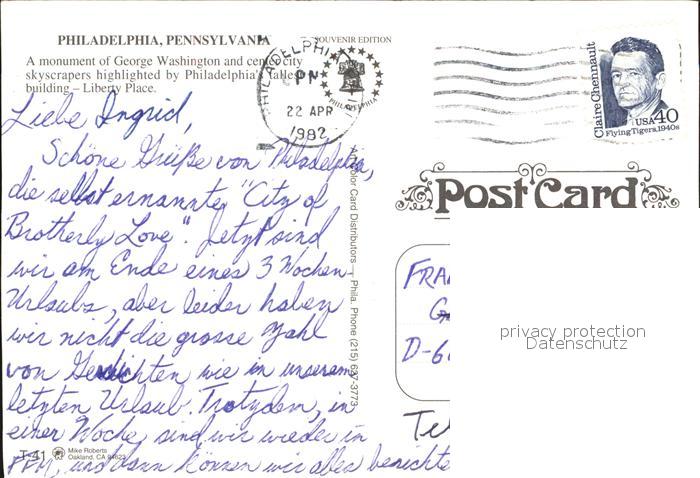 PHILADELPHIA, PENNSYLVANIA
SOUVENIR EDITION
A monument of George Washington and center city
skyscrapers highlighted by Philadelphia's tallest
building – Liberty Place.
PHILADELPHIA
PM
22 APR
1982
PHILADELPHIA
Claire Chennault
USA40
Flying Tigers, 1940s
Post Card
Liebe Ingrid,
Schöne Grüße von Philadelphia,
die selbst ernannte "City of
Brotherly Love". Jetzt sind
wir am Ende eines 3 Wochen
Urlaubs, aber leider haben
wir nicht die grosse Zahl
von Geschichten wie in unserem
letzten Urlaub. Trotzdem, in
einer Woche, sind wir wieder in
FFM, und dann können wir alles berichte
Color Card Distributors – Phila. Phone (215) 637-3773
T-41
Mike Roberts
Oakland, CA 94623
FRA
D-6
Te
privacy protection
Datenschutz